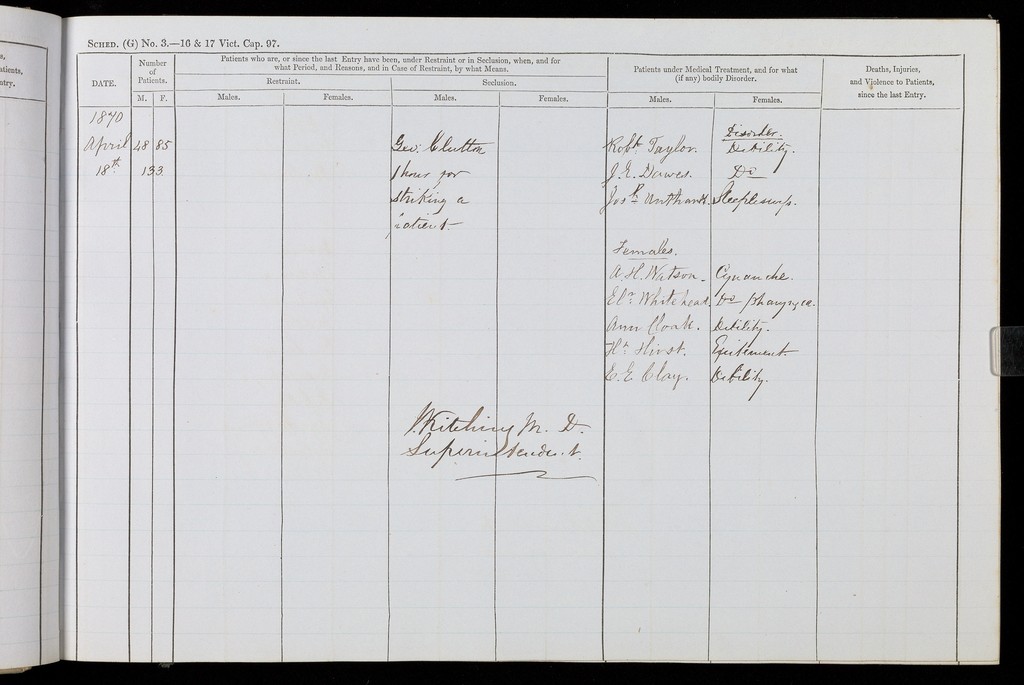 SCHED. (G) No. 3.—16 & 17 Vict. Cap. 97.
DATE.
Number of Patients.
M. F.
Patients who are, or since the last Entry have been, under Restraint or in Seclusion, when, and for
what Period, and Reasons, and in Case of Restraint, by what Means.
Restraint.
Seclusion.
Males. Females. Males. Females.
Patients under Medical Treatment, and for what
(if any) bodily Disorder.
Males. Females.
Deaths, Injuries,
and Violence to Patients,
since the last Entry.
1870
April 48 85
18th 133
Geo: Clutton
1 hour for
striking a
patient
Disorder.
Robt. Taylor. Debility.
J. E. Dawes. Do
Josh. Unthank. Sleeplessness.
Females.
A. H. Watson. Cynanche.
Elr. Whitehead. Do pharyngea.
Ann Cloak. Debility.
Hh. Hirst. Excitement.
E. E Clay. Debility.
J. Kitching M. D.
Superintendent.
s.
atients,
ntry.